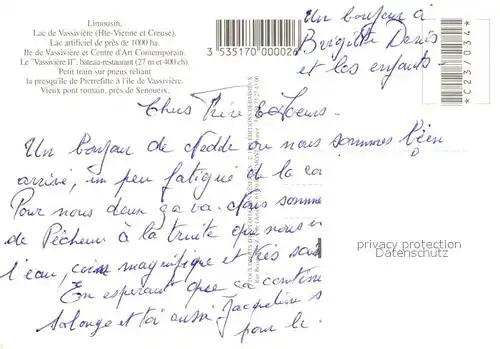 Limousin,
Lac de Vassivière (Hte-Vienne et Creuse).
Lac artificiel de près de 1000 ha.
Ile de Vassivière et Centre d'Art Contemporain.
Le "Vassivière II", bateau-restaurant (27 m et 400 ch).
Petit train sur pneus reliant
la presqu'île de Pierrefitte à l'île de Vassivière.
Vieux pont romain, près de Senoueix.
3 535170 000026
Un bonjour à
Brigitte Denis
et les enfants-
*C23/034*
Chers Frère &
Un bonjour de Nedde ou nous sommes bien
arrivé, un peu fatigué de la
Pour nous deux ça va. Nous somme
de Pêcheur à la truite que nous
l'eau, coin magnifique et très
En esperant que ça continu
Solange et toi aussi. Jacqueline s
pour le
privacy protection
Datenschutz